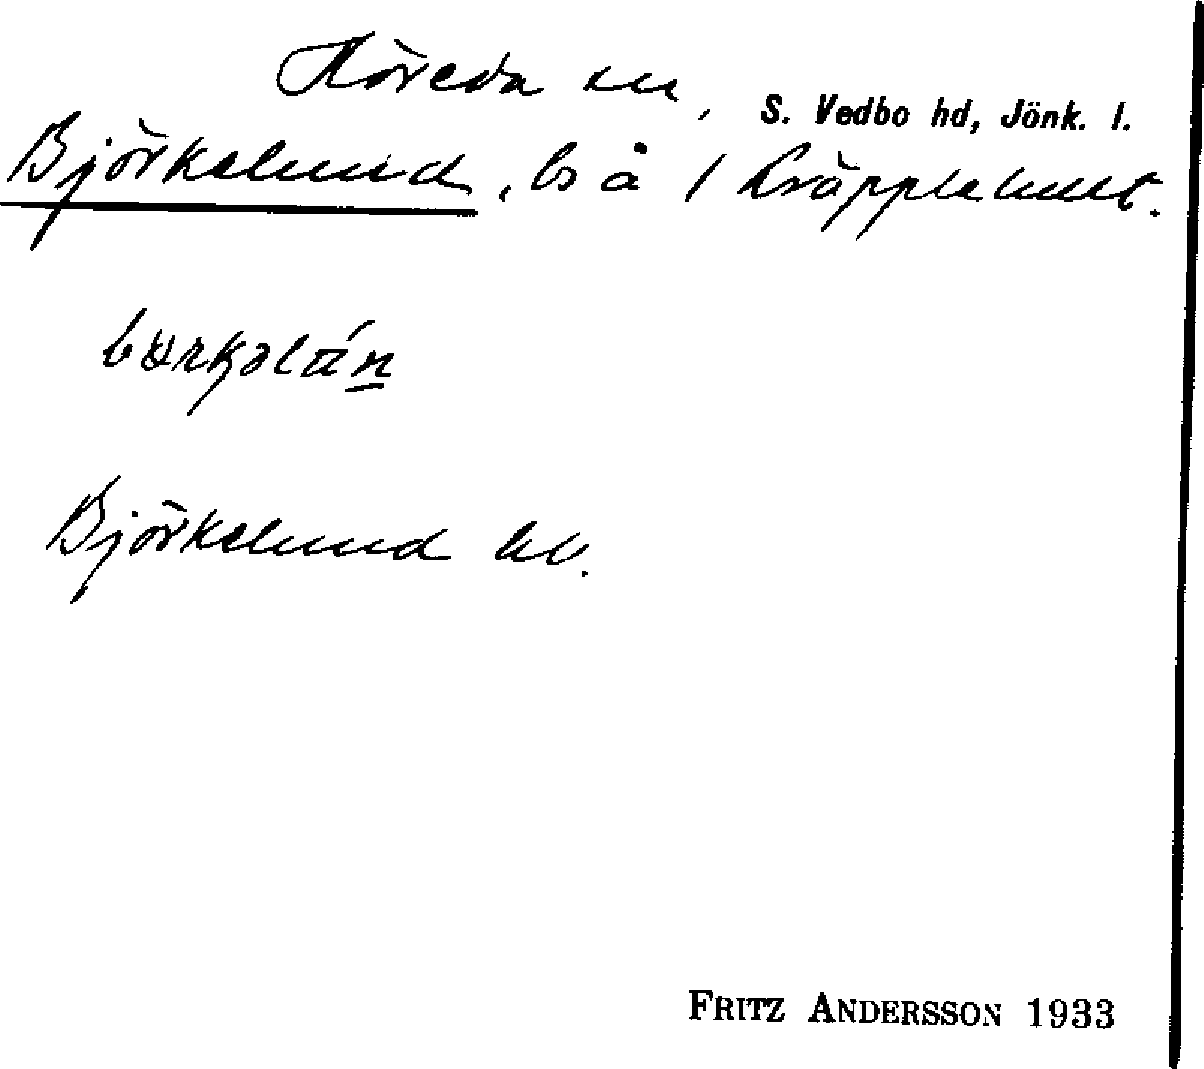 Höreda sn, S. Vedbo hd, Jönk. l.
Björkelund, ls å 1 Kräpplehult.
Björkelund kb.
FRITZ ANDERSSON 1933